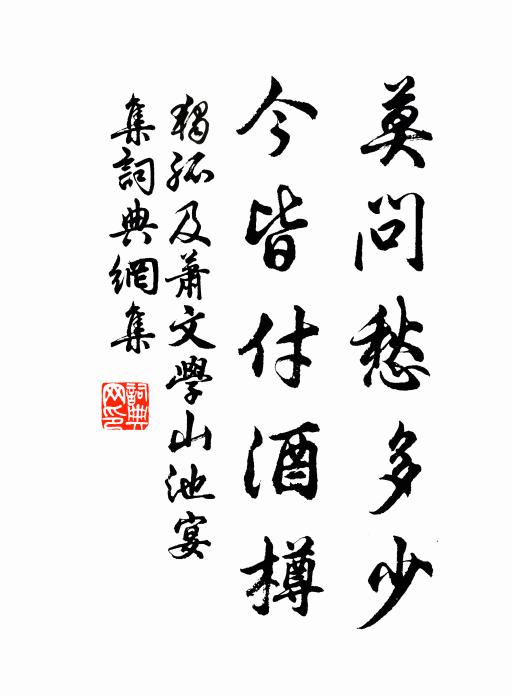 莫問愁多少
今皆付酒樽
獨孤及蕭文學山池宴
集詞典網集
詞典
网印